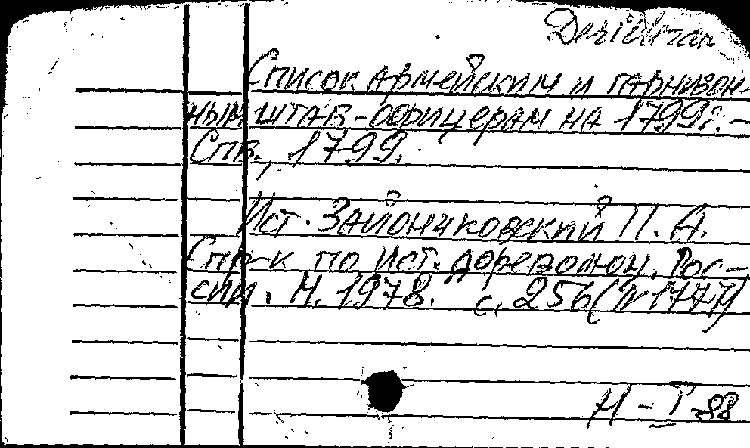 Список армейским и гарнизон-
ным штаб-офицерам на 1799г.-
Спб., 1799.
Ист. Зайончковский П. А.
Спр-к по ист. дореволюц. Рос-
сии. М. 1978. с. 256 (№1777)
М - I -88